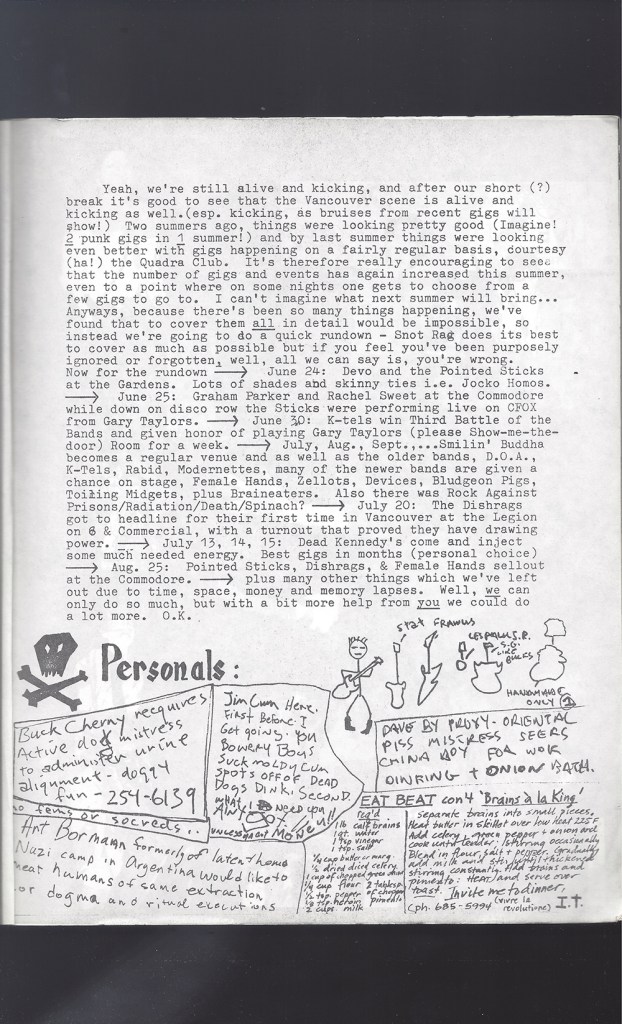 Yeah, we're still alive and kicking, and after our short (?)
break it's good to see that the Vancouver scene is alive and
kicking as well.(esp. kicking, as bruises from recent gigs will
show!) Two summers ago, things were looking pretty good (Imagine!
2 punk gigs in 1 summer!) and by last summer things were looking
even better with gigs happening on a fairly regular basis, courtesy
(ha!) the Quadra Club. It's therefore really encouraging to seee
that the number of gigs and events has again increased this summer,
even to a point where on some nights one gets to choose from a
few gigs to go to. I can't imagine what next summer will bring...
Anyways, because there's been so many things happening, we've
found that to cover them all in detail would be impossible, so
instead we're going to do a quick rundown - Snot Rag does its best
to cover as much as possible but if you feel you've been purposely
ignored or forgotten, well, all we can say is, you're wrong.
Now for the rundown → June 24: Devo and the Pointed Sticks
at the Gardens. Lots of shades and skinny ties i.e. Jocko Homos.
→ June 25: Graham Parker and Rachel Sweet at the Commodore
while down on disco row the Sticks were performing live on CFOX
from Gary Taylors. → June 30: K-tels win Third Battle of the
Bands and given honor of playing Gary Taylors (please Show-me-the-
door) Room for a week. → July, Aug., Sept.,...Smilin' Buddha
becomes a regular venue and as well as the older bands, D.O.A.,
K-Tels, Rabid, Modernettes, many of the newer bands are given a
chance on stage, Female Hands, Zellots, Devices, Bludgeon Pigs,
Toiling Midgets, plus Braineaters. Also there was Rock Against
Prisons/Radiation/Death/Spinach? → July 20: The Dishrags
got to headline for their first time in Vancouver at the Legion
on 6 & Commercial, with a turnout that proved they have drawing
power. → July 13, 14, 15: Dead Kennedy's come and inject
some much needed energy. Best gigs in months (personal choice)
→ Aug. 25: Pointed Sticks, Dishrags, & Female Hands sellout
at the Commodore. → plus many other things which we've left
out due to time, space, money and memory lapses. Well, we can
only do so much, but with a bit more help from you we could do
a lot more. O.K.
Personals:
Buck Cherry recquires
Active dog mistress
to administer urine
alignment - doggy
fun - 254-6139
no fems or socreds..
Art Bormann formerly of latent homo
Nazi camp in Argentina would like to
eat humans of same extraction
or dogma and ritual executions
Jim Cum Here.
First Before I
Get going. you
Bowery Boys
suck moldy cum
spots off of DEAD
Dogs Dink. Second.
what
Any! I need you
MONEY!!
HANDMADE
ONLY
DAVE BY PROXY - ORIENTAL
PISS MISTRESS SEEKS
CHINA BOY FOR WOK
DINKING + ONION BATH.
EAT BEAT con't 'Brains à la King'
req'd
1 lb calf brains
1 qt. water
1 tsp vinegar
1 tsp. salt
¼ cup butter or marg.
½ dried celery
¼ cup flour
2 cups milk
Separate brains into small pieces.
Heat buter in skillet over low heat 225°F
Add celery + green pepper + onion and
cook until tender. Stirring occasionally
Blend in flour, salt + pepper. Gradually
add milk and stir until thickened
stirring constantly. Add brains and
pimento: Heat and serve over
toast. Invite me to dinner.
(ph. 685-5994 (vivre la
revolutione) I.T.